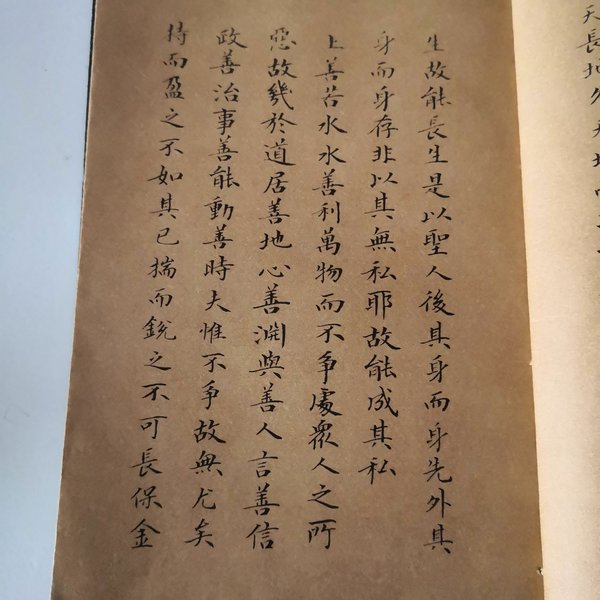 天長地
生故能長生是以聖人後其身而身先外其
身而身存非以其無私耶故能成其私
上善若水水善利萬物而不争處衆人之所
惡故幾於道居善地心善淵與善人言善信
政善治事善能動善時夫惟不争故無尤矣
持而盈之不如其已揣而銳之不可長保金